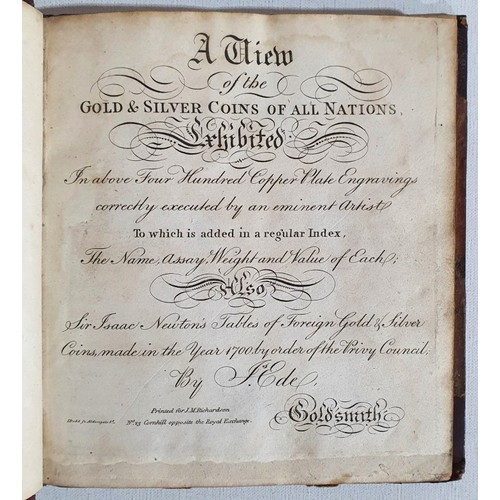 A View
of the
GOLD & SILVER COINS OF ALL NATIONS,
Exhibited
In above Four Hundred Copper Plate Engravings
correctly executed by an eminent Artist
To which is added in a regular Index,
The Name, Assay, Weight and Value of Each;
Also
Sir Isaac Newton's Tables of Foreign Gold & Silver
Coins, made in the Year 1700, by order of the Privy Council.
By Js. Ede,
Goldsmith
Printed for J.M. Richardson
No. 23 Cornhill opposite the Royal Exchange.